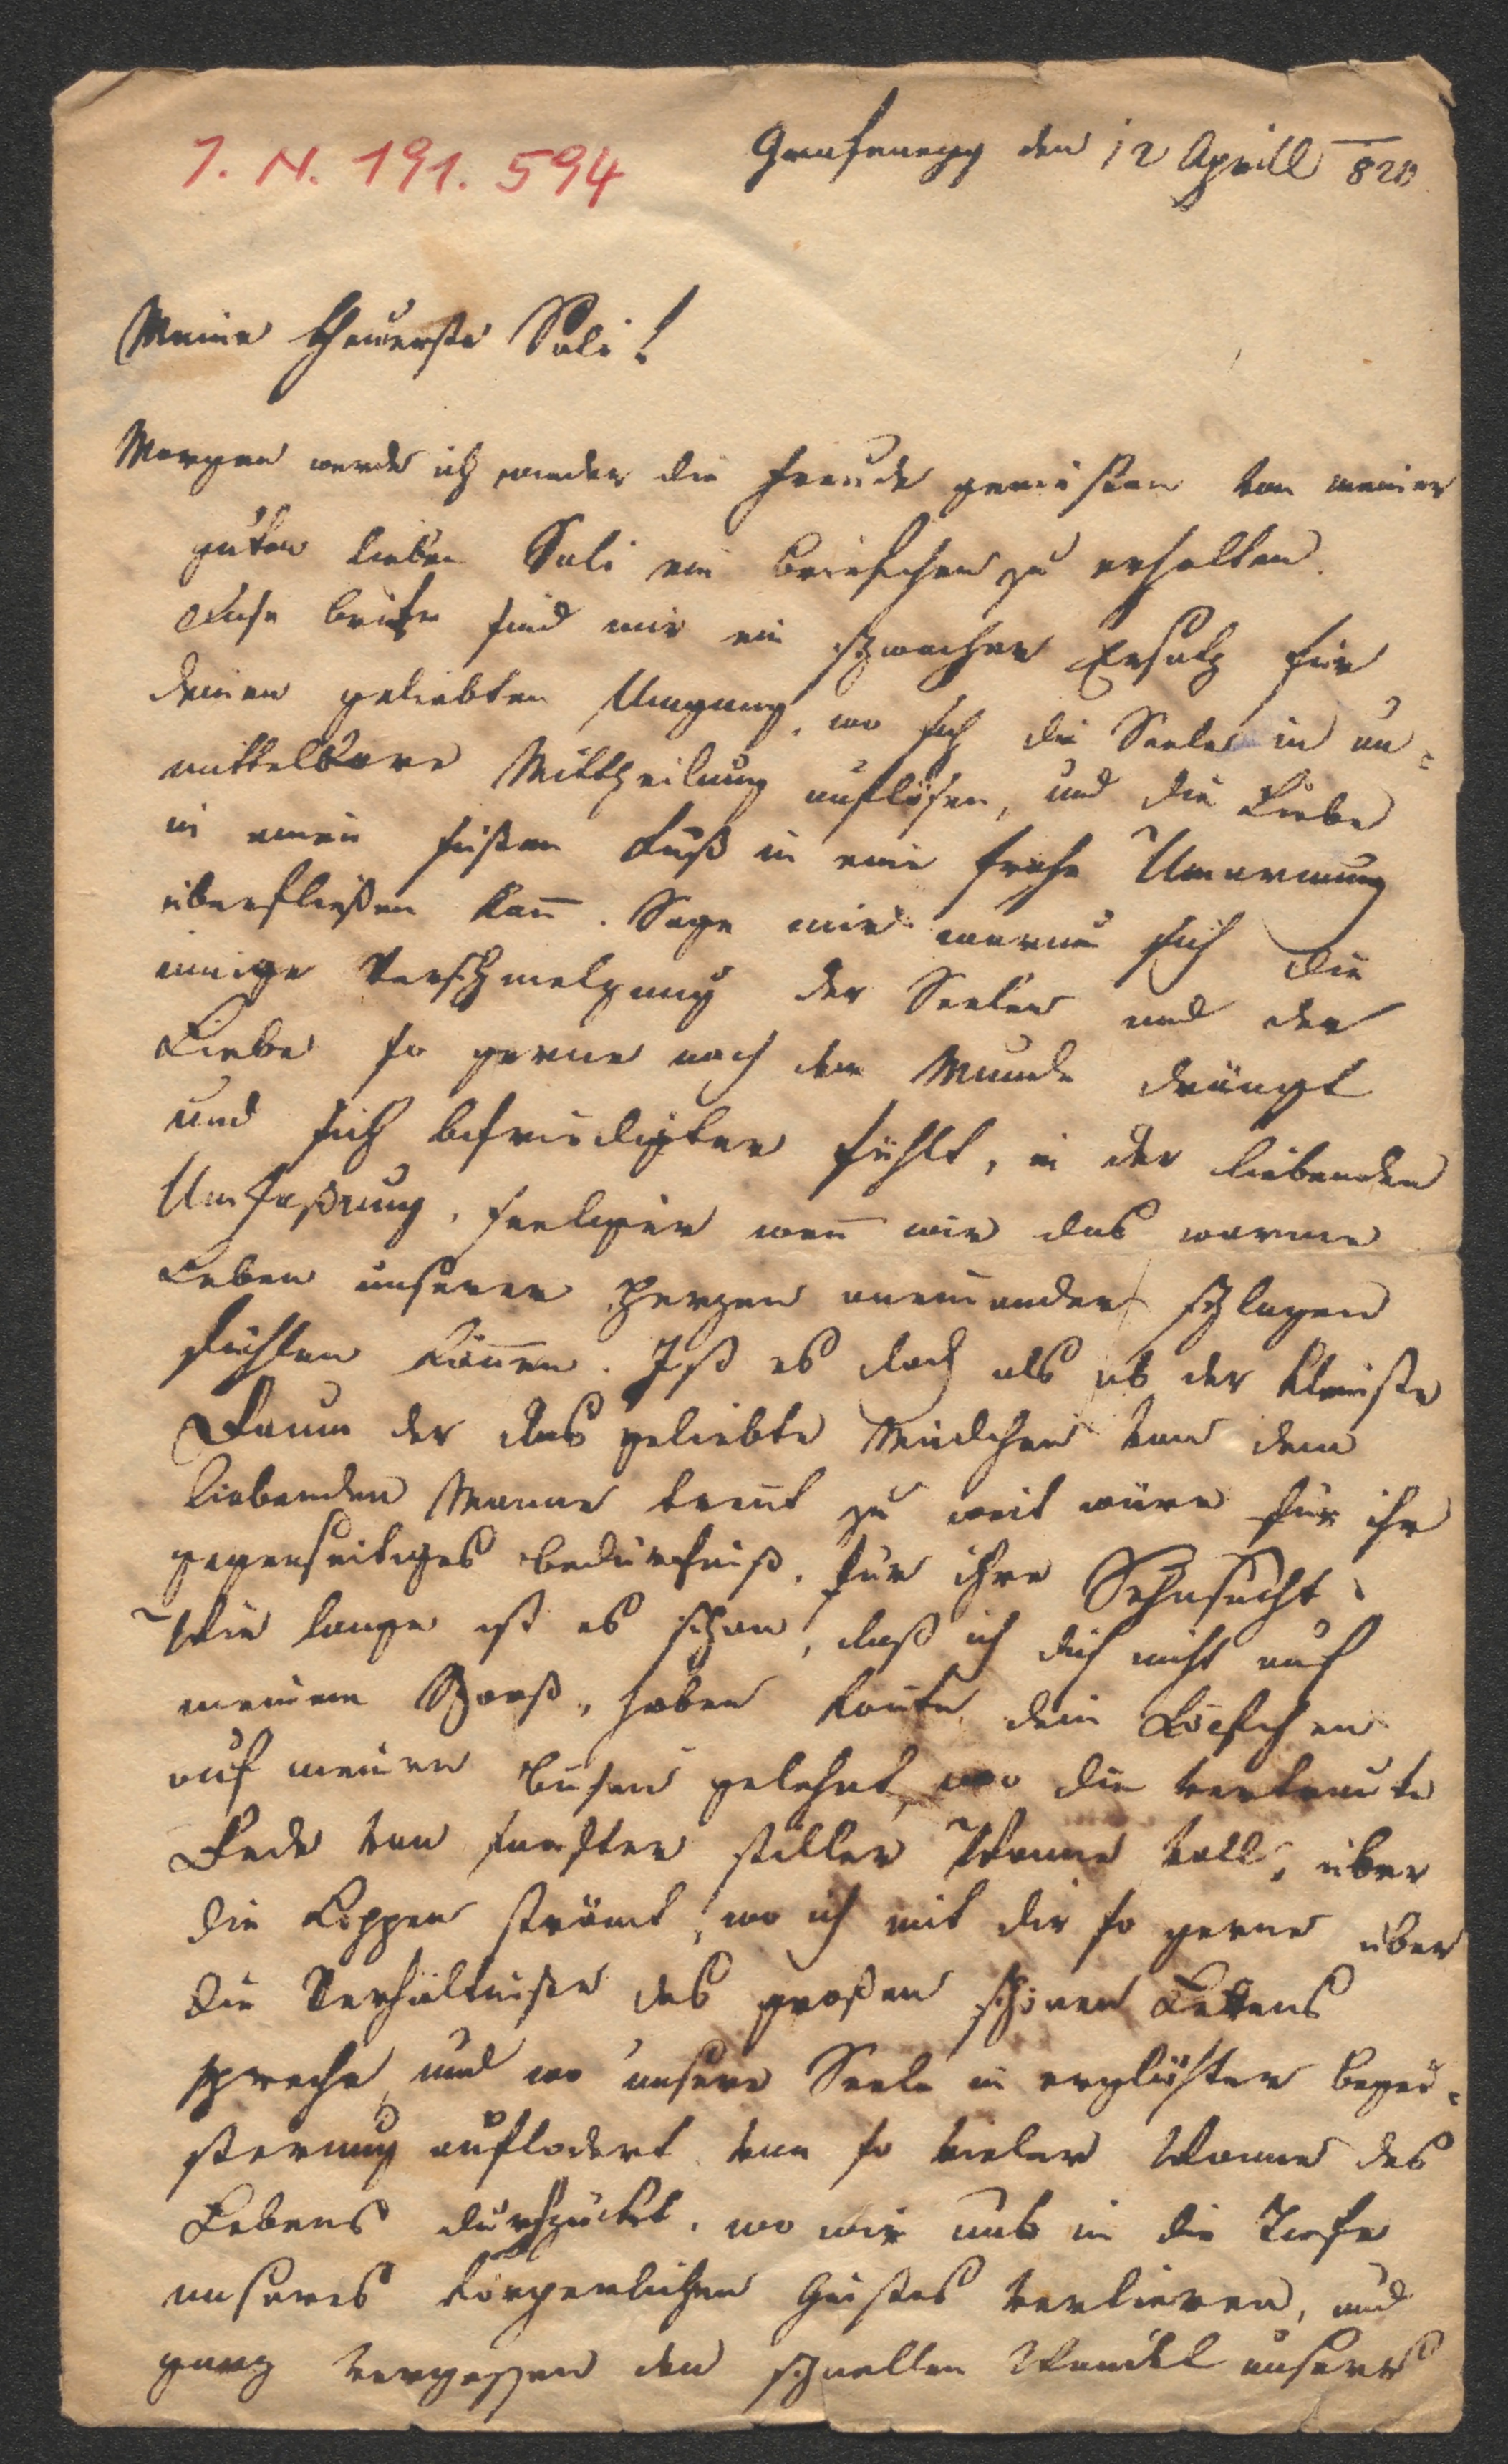 I. N. 191.594
Grafenegg den 12 Aprill 820
Meine theuerste Sali!
Morgen werde ich wieder die Freude genießen von meiner
guten lieben Sali ein Briefchen zu erhalten.
Diese Briefe sind mir ein schwacher Ersatz für
deinen geliebten Umgang, wo sich die Seelen in un=
mittelbare Mittheilung auflösen, und die Liebe
in einen süßen Kuß in eine frohe Umarmung
überfließen kann. Sage mir warum sich die
innige Verschmelzung der Seelen und der
Liebe so gerne nach dem Munde drängt
und sich befriedigter fühlt, in der liebenden
Umfaßung, seeliger wenn wir das warme
Leben unserer Herzen aneinander schlagen
fühlen können. Ist es doch als ob der kleinste
Raum der das geliebte Mädchen von dem
liebenden Manne trent zu weit wäre für ihr
gegenseitiges Bedürfniß, für ihre Sehnsucht.
Wie lange ist es schon, daß ich dich nicht auf
meinem Schooß, haben konte, dein Köpfchen
auf meinen Busen gelehnt, wo die vertraute
Rede von sanfter stiller Wonne voll, über
die Lippen strömt, wo ich mit dir so gerne über
die Verhältniße des großen schönen Lebens
spreche, und wo unsere Seele in erglühter Begei=
sterung auflodert von so vieler Wonne des
Lebens durchzückt, wo wir uns in die Tiefe
unseres körperlichen Geistes verlieren, und
ganz vergessen den schnellen Wandel unsers